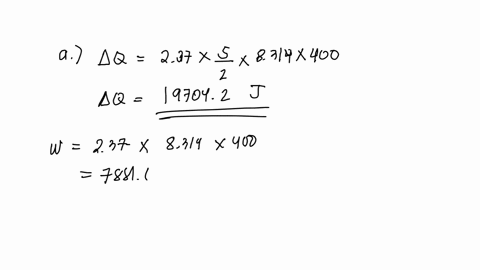 a.) ΔQ = 2.37 × 5/2 × 8.314 × 400
ΔQ = 19704.2 J
W = 2.37 × 8.314 × 400
= 7881.